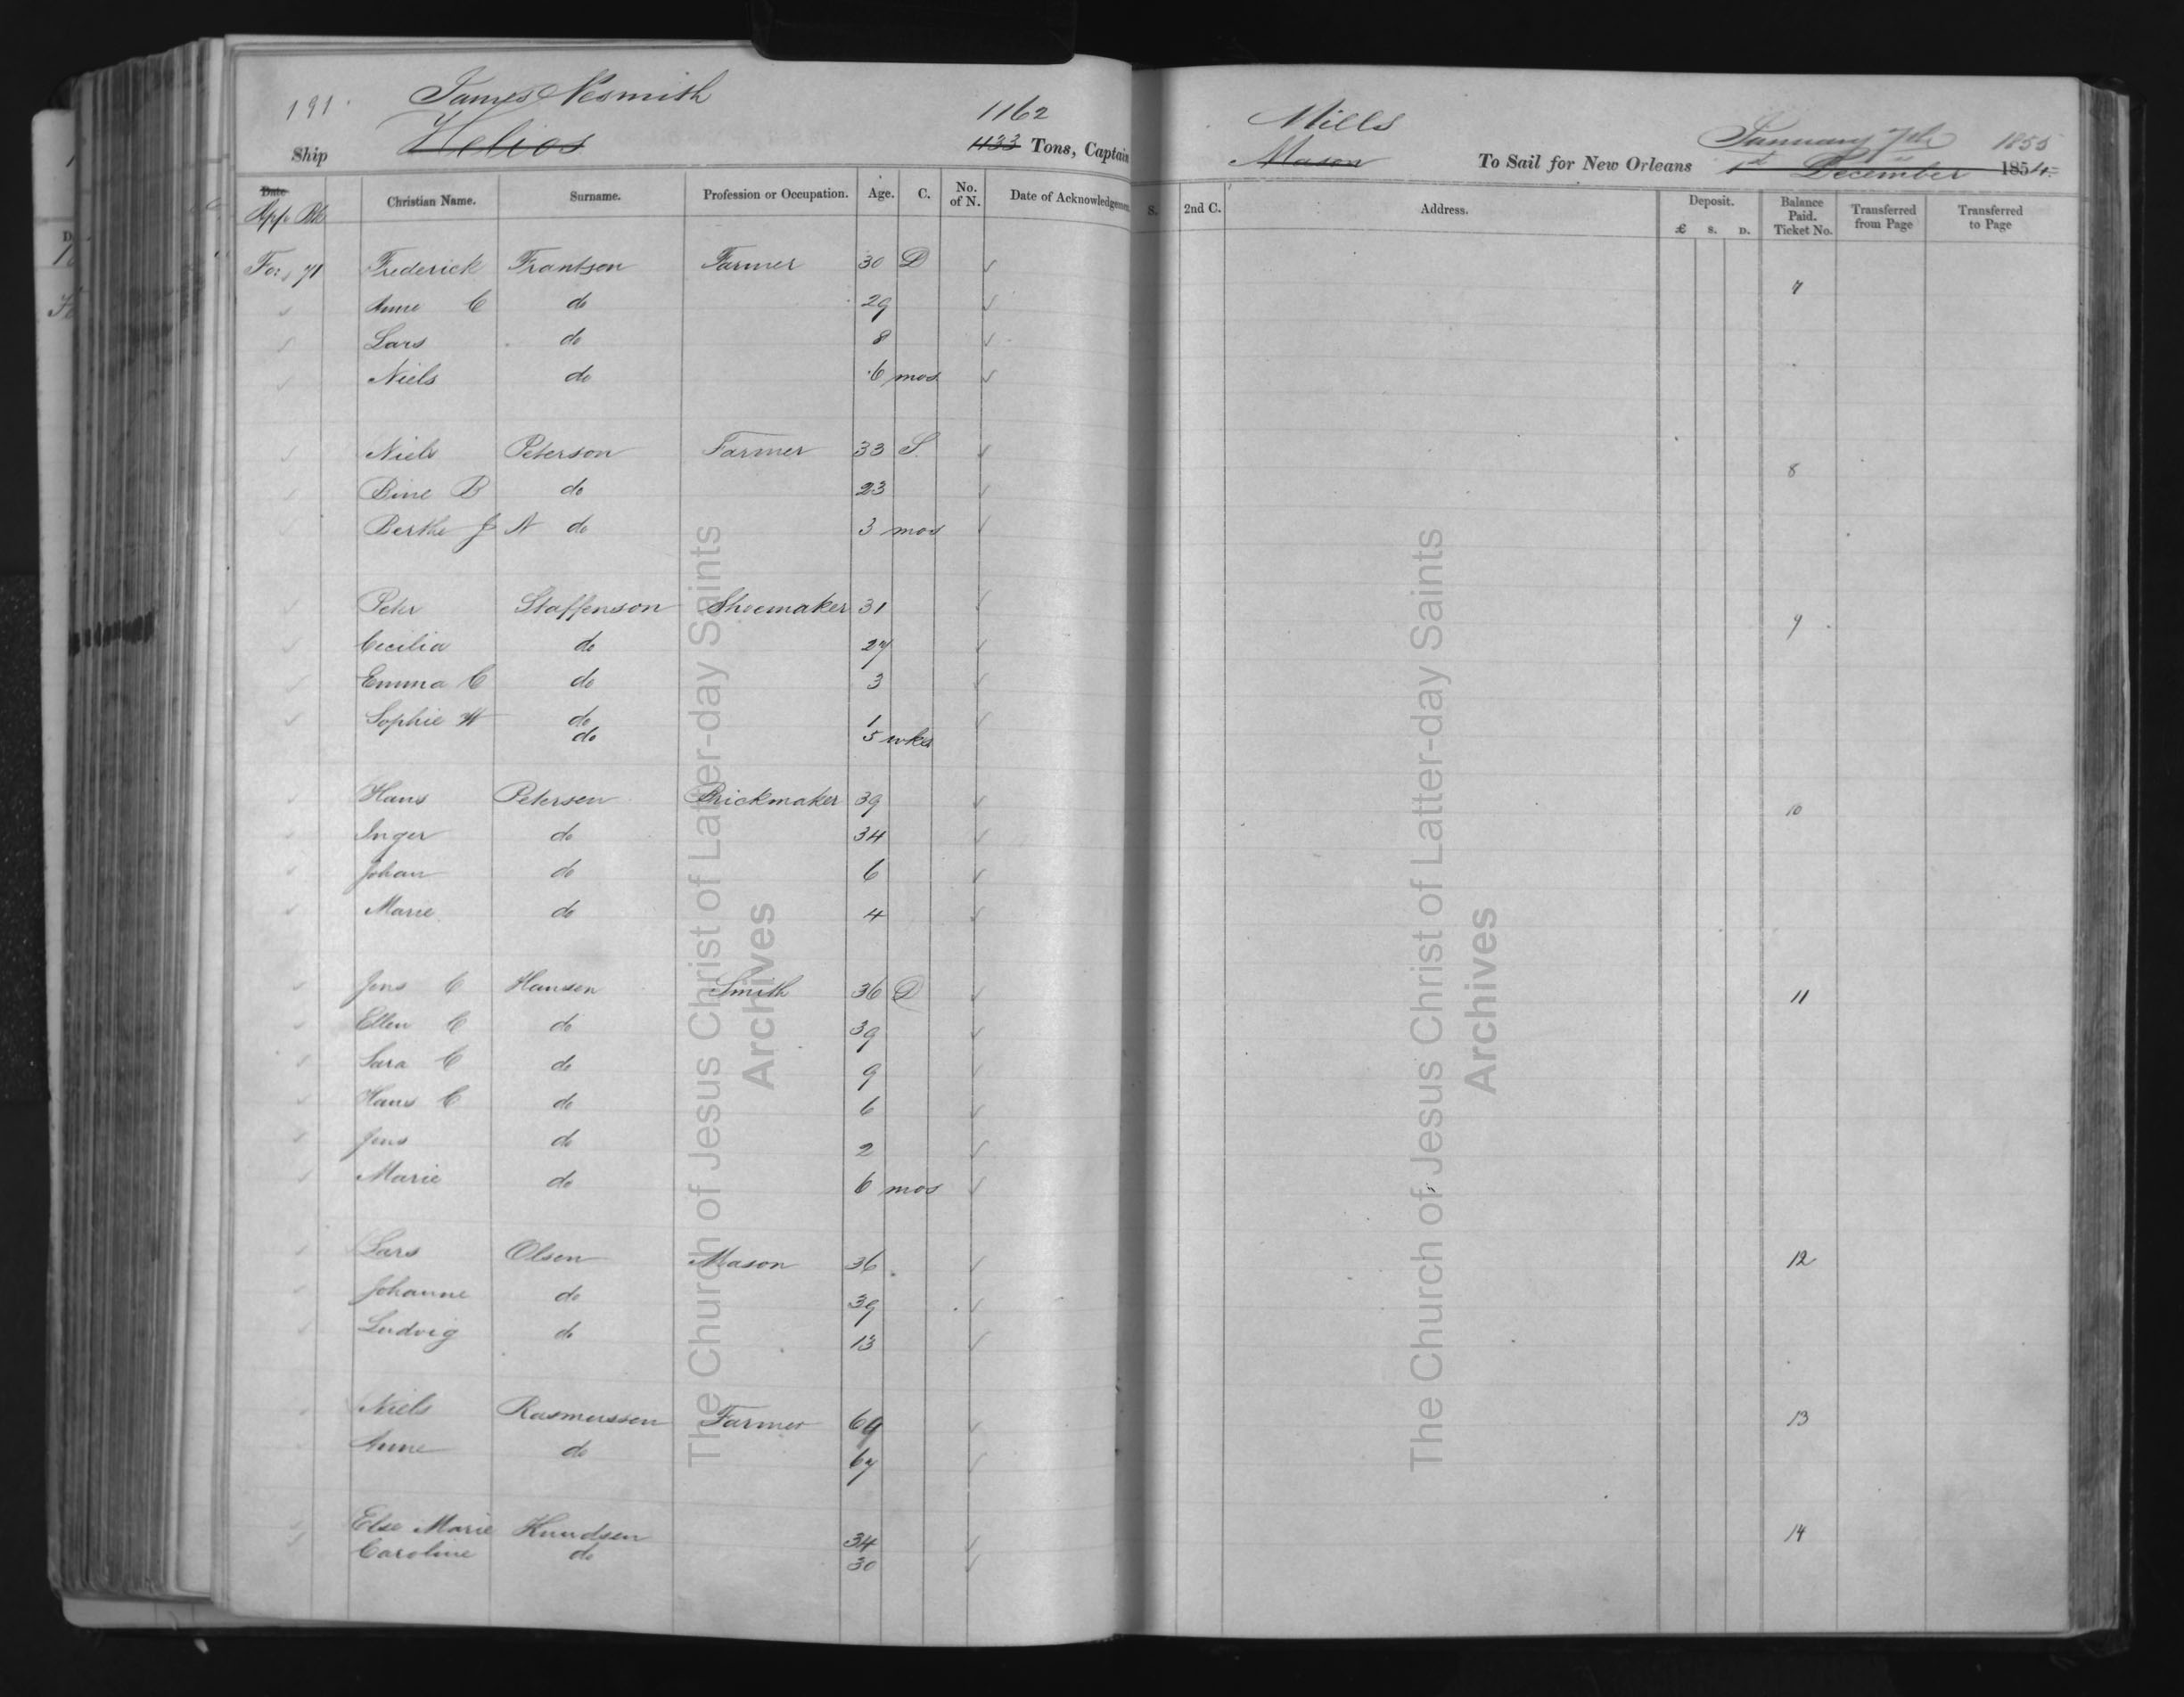 191 James Nesmith 1162 Mills January 7th 1855
Ship Helios 1133 Tons, Captain Mason To Sail for New Orleans 1st December 1854
Date Christian Name. Surname. Profession or Occupation. Age. C. No. of N. Date of Acknowledgement S. 2nd C. Address. Deposit. £ S. D. Balance Paid. Ticket No. Transferred from Page Transferred to Page
App Bk
For, 71 Frederick Frantsen Farmer 30 D 7
Anne C do 29
Lars do 8
Niels do 6 mos
Niels Peterson Farmer 33 S. 8
Sine B do 23
Berthe J N do 3 mos
Peter Staffenson Shoemaker 31 9
Cecilia do 27
Emma C do 3
Sophie W do 1
do 5 wks
Hans Petersen Brickmaker 39 10
Inger do 34
Johan do 6
Marie do 4
Jens C Hansen Smith 36 D 11
Ellen C do 39
Sara C do 9
Hans C do 6
Jens do 2
Marie do 6 mos
Lars Olsen Mason 36 12
Johanne do 39
Ludvig do 13
Niels Rasmussen Farmer 69 13
Anne do 67
Else Marie Knudsen 34 14
Caroline do 30
The Church of Jesus Christ of Latter-day Saints
Archives
The Church of Jesus Christ of Latter-day Saints
Archives